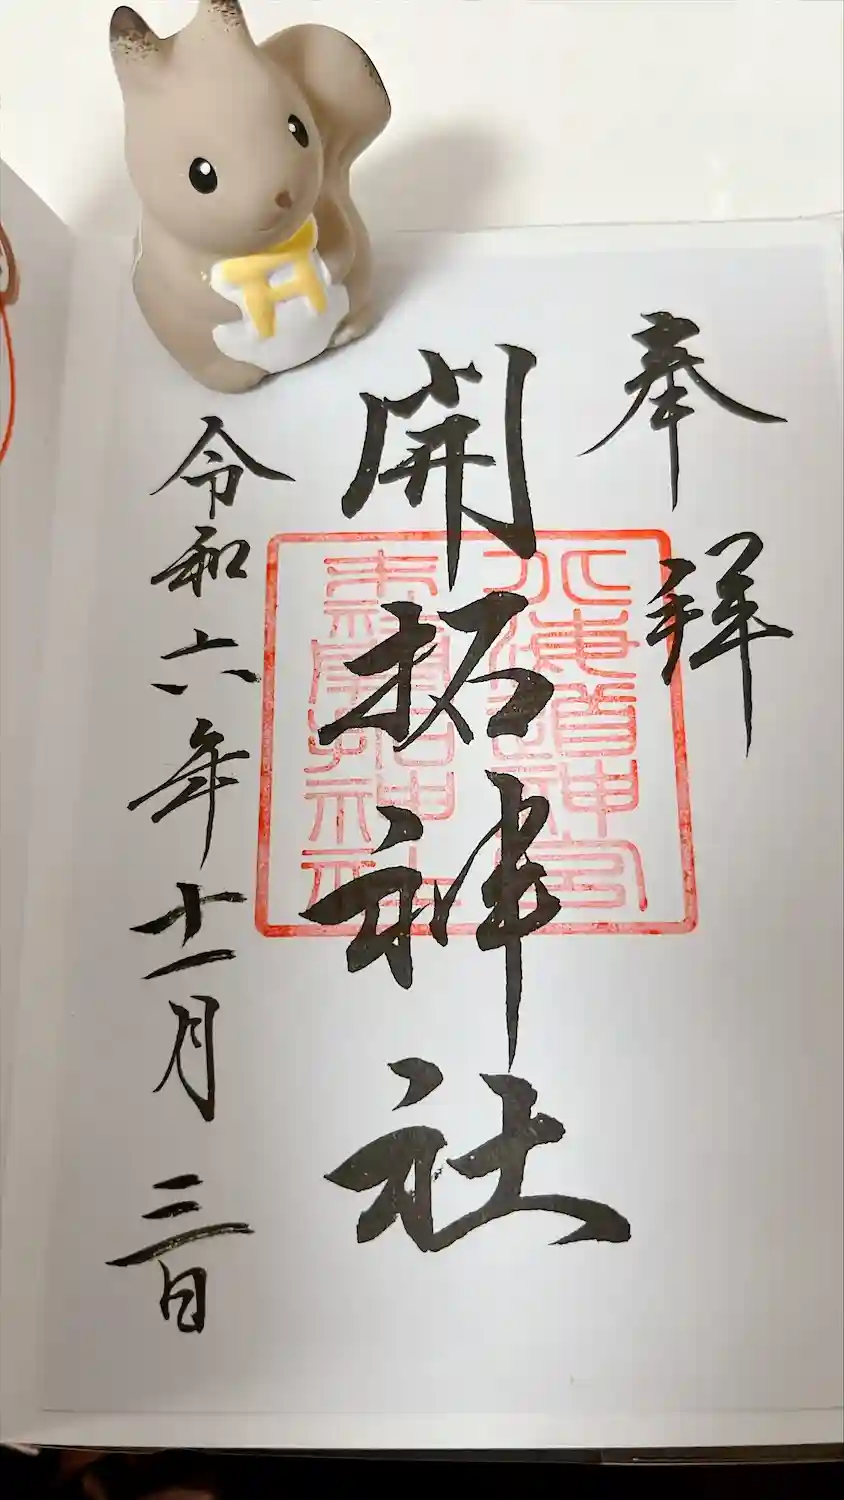 奉拝
開拓神社
北海道神宮
末社開拓神社
令和六年十一月三日